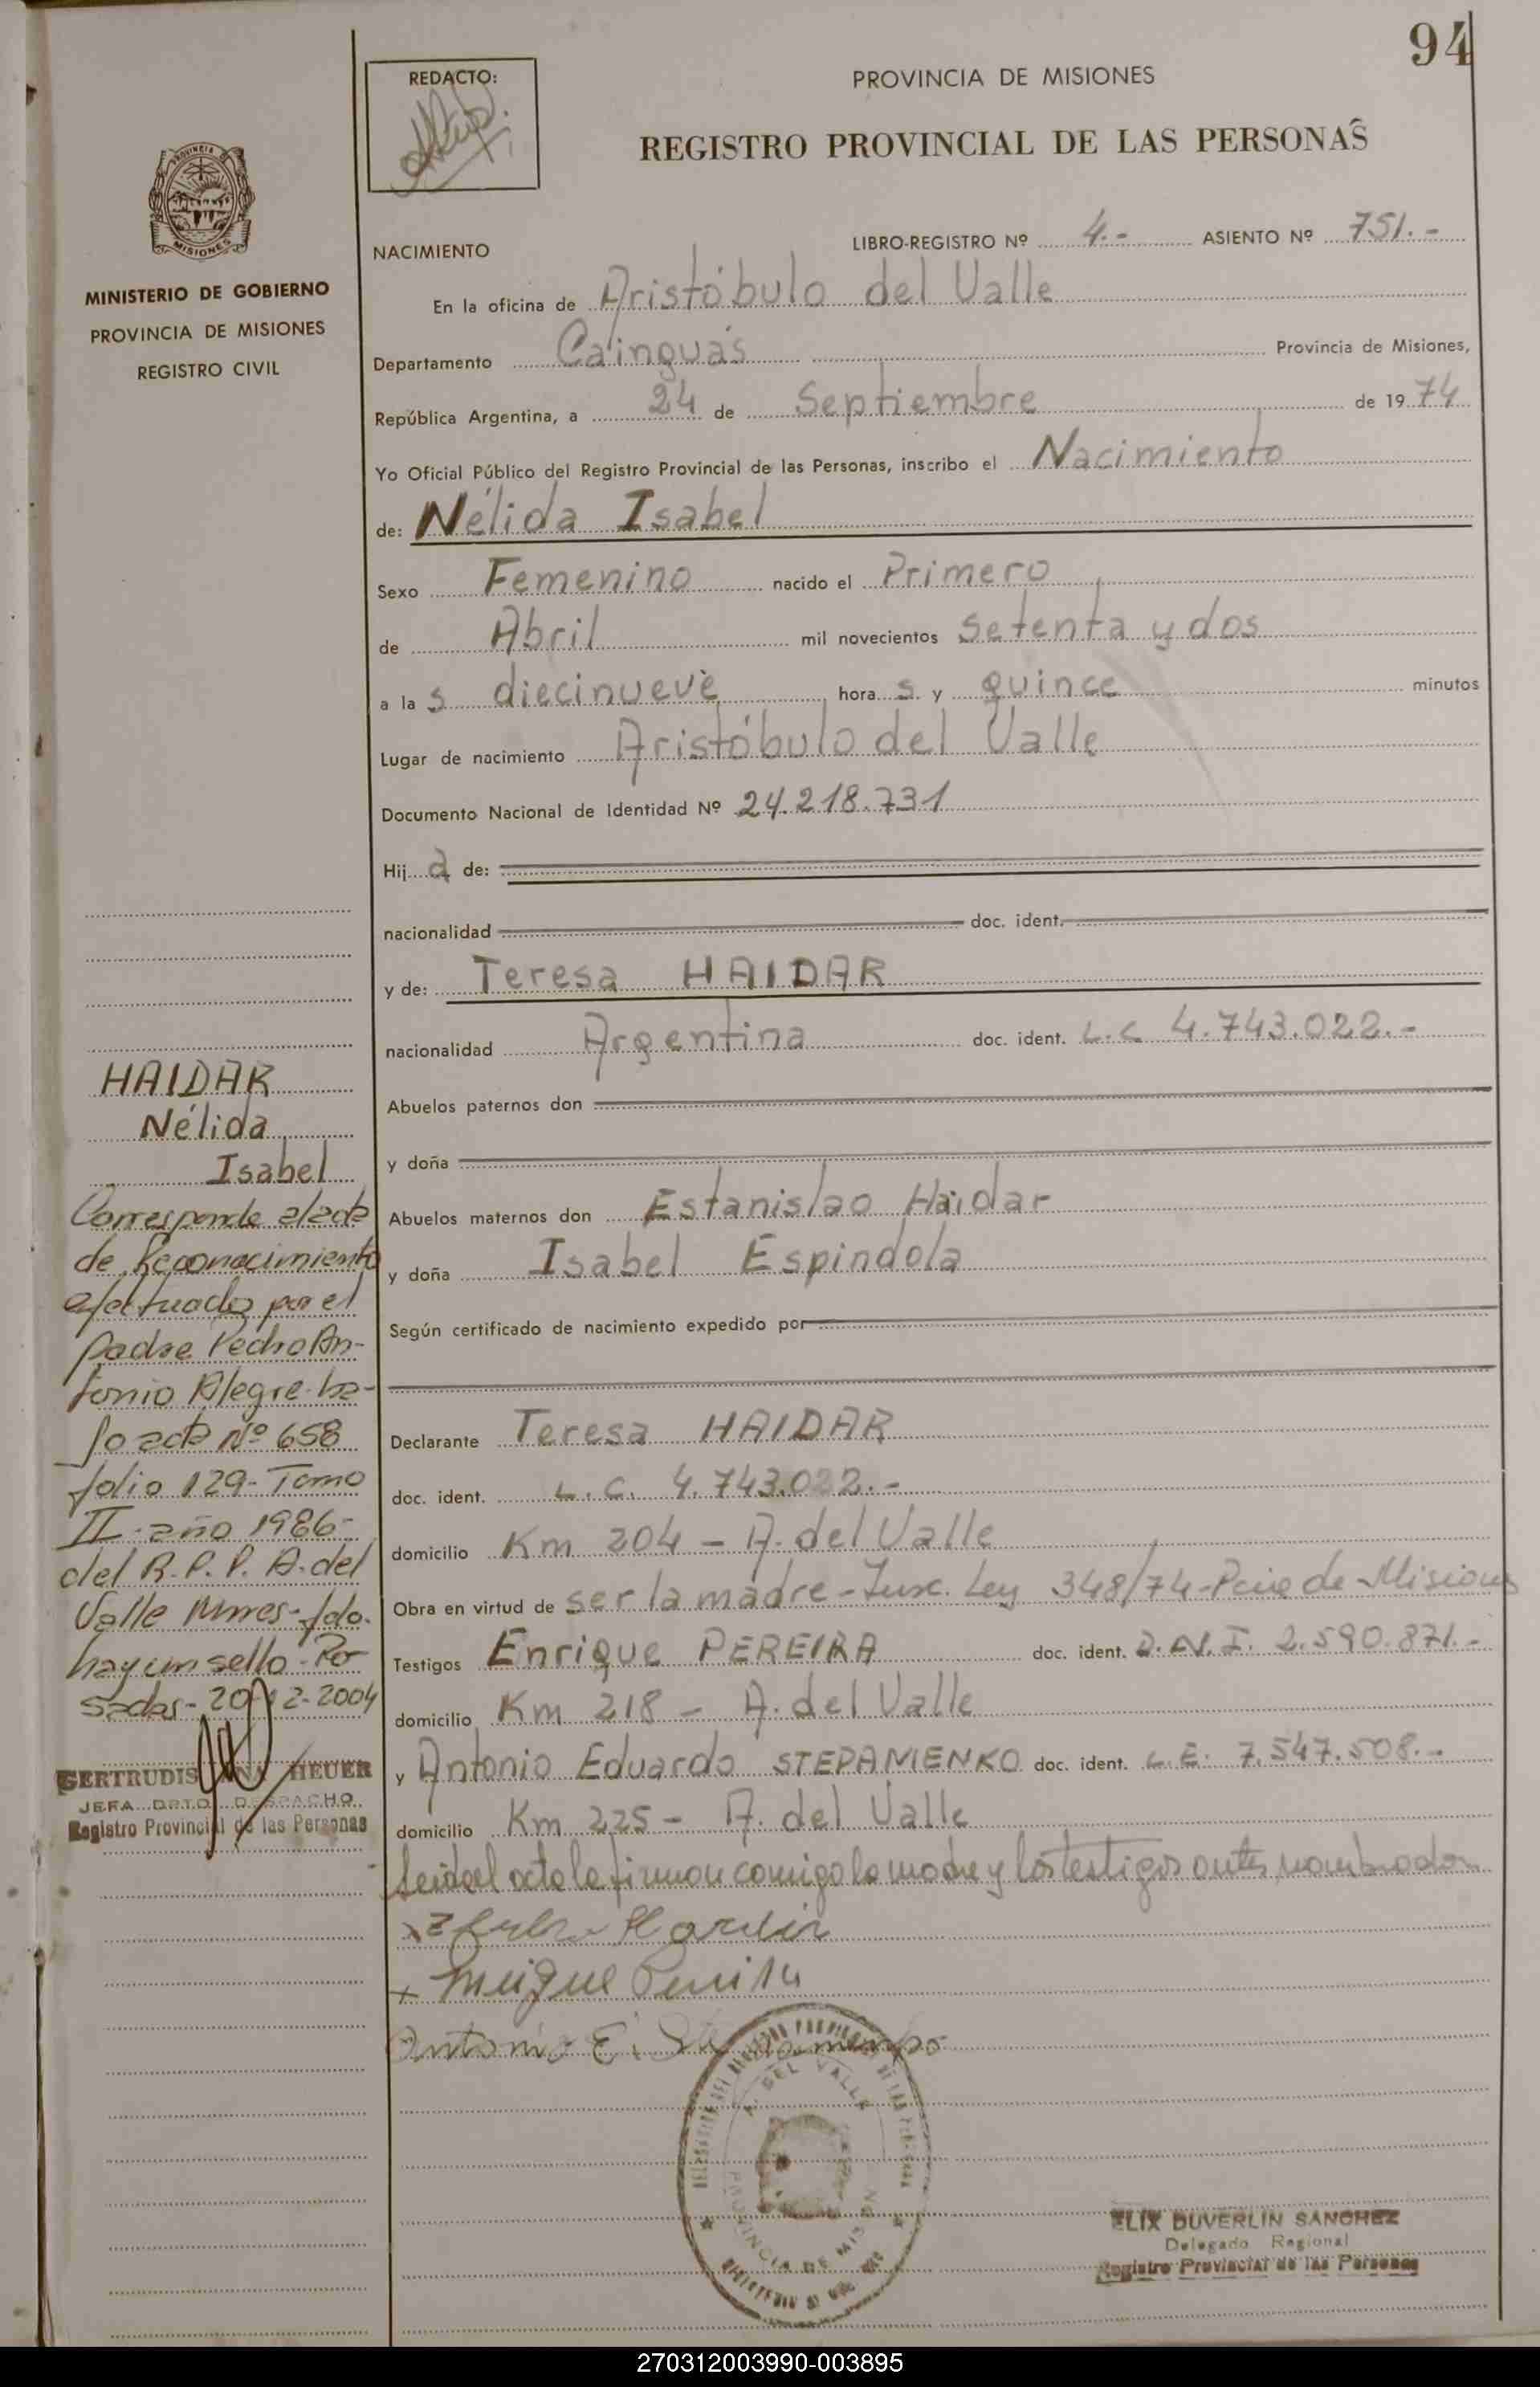 94
REDACTO:
PROVINCIA DE MISIONES
REGISTRO PROVINCIAL DE LAS PERSONAS
PROVINCIA DE
MISIONES
MINISTERIO DE GOBIERNO
PROVINCIA DE MISIONES
REGISTRO CIVIL
NACIMIENTO
LIBRO-REGISTRO Nº 4.- ASIENTO Nº 751.-
En la oficina de Aristóbulo del Valle
Departamento Cainguás Provincia de Misiones,
República Argentina, a 24 de Septiembre de 1974
Yo Oficial Público del Registro Provincial de las Personas, inscribo el Nacimiento
de: Nélida Isabel
Sexo Femenino nacido el Primero
de Abril mil novecientos setenta y dos
a la s diecinueve hora s y quince minutos
Lugar de nacimiento Aristóbulo del Valle
Documento Nacional de Identidad Nº 24.218.731
Hij a de:
nacionalidad doc. ident.
y de: Teresa HAIDAR
nacionalidad Argentina doc. ident. L.C 4.743.022.-
Abuelos paternos don
y doña
Abuelos maternos don Estanislao Haidar
y doña Isabel Espindola
Según certificado de nacimiento expedido por
Declarante Teresa HAIDAR
doc. ident. L.C. 4.743.022.-
domicilio Km 204 - A. del Valle
Obra en virtud de ser la madre - Ley 348/74 - de Misiones
Testigos Enrique PEREIRA doc. ident. D.N.I. 2.590.871.-
domicilio Km 218 - A. del Valle
y Antonio Eduardo STEPANIENKO doc. ident. L.E. 7.547.508.-
domicilio Km 225 - A. del Valle
Leida el acta la firman comigo la madre y los testigos antes nombrados
Antonio E.
HAIDAR
Nélida
Isabel
Corresponde al acta
de Reconocimiento
efectuado por el
padre Pedro An-
tonio Alegre ba-
jo acta Nº 658
folio 129- Tomo
II- año 1986-
del R.P.P. A. del
Valle Mnes- fdo.
hay un sello- Po
sadas- 20-12-2004
GERTRUDIS HEUER
JEFA DPTO. DESPACHO
Registro Provincial de las Personas
A. DEL VALLE
PROVINCIA DE MISIONES
ELIX DUVERLIN SANCHEZ
Delegado Regional
Registro Provincial de las Personas
270312003990-003895